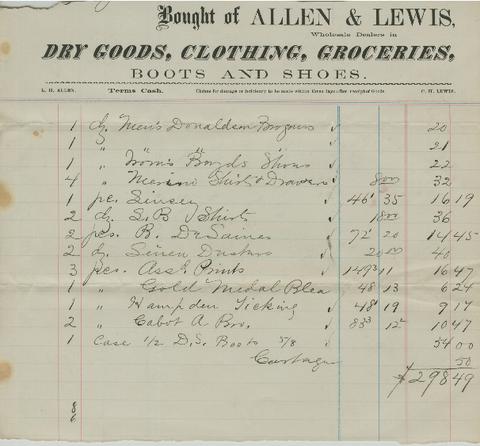 Bought of ALLEN & LEWIS,
Wholesale Dealers in
DRY GOODS, CLOTHING, GROCERIES,
BOOTS AND SHOES.
L. H. ALLEN. Terms Cash. Claims for damage or deficiency to be made within three days after receipt of Goods. C. H. LEWIS.
1 dz Men's Donaldson Brogans ✓ 20
1 " " 21
1 " Wom's Boyds Shoes ✓ 22
4 " Merino Shirts & Drawers ✓ 8 00 32
1 pc. Linsey ✓ 46¹ 35 16 19
2 dz S. B. Shirts ✓ 18 00 36
2 pcs. B. DeLaines ✓ 72¹ 20 14 45
2 dz Linen Dusters ✓ 20 00 40
3 pcs. Asst Prints ✓ 149³ 11 16 47
1 " Gold Medal Blea ✓ 48 13 6 24
1 " Hampden Ticking ✓ 48¹ 19 9 17
2 " Cabot A Bro. ✓ 83³ 12½ 10 47
1 Case 1/2 D.S. Boots 5/8 ✓ 54 00
Cartage 50
$298 49
8
6